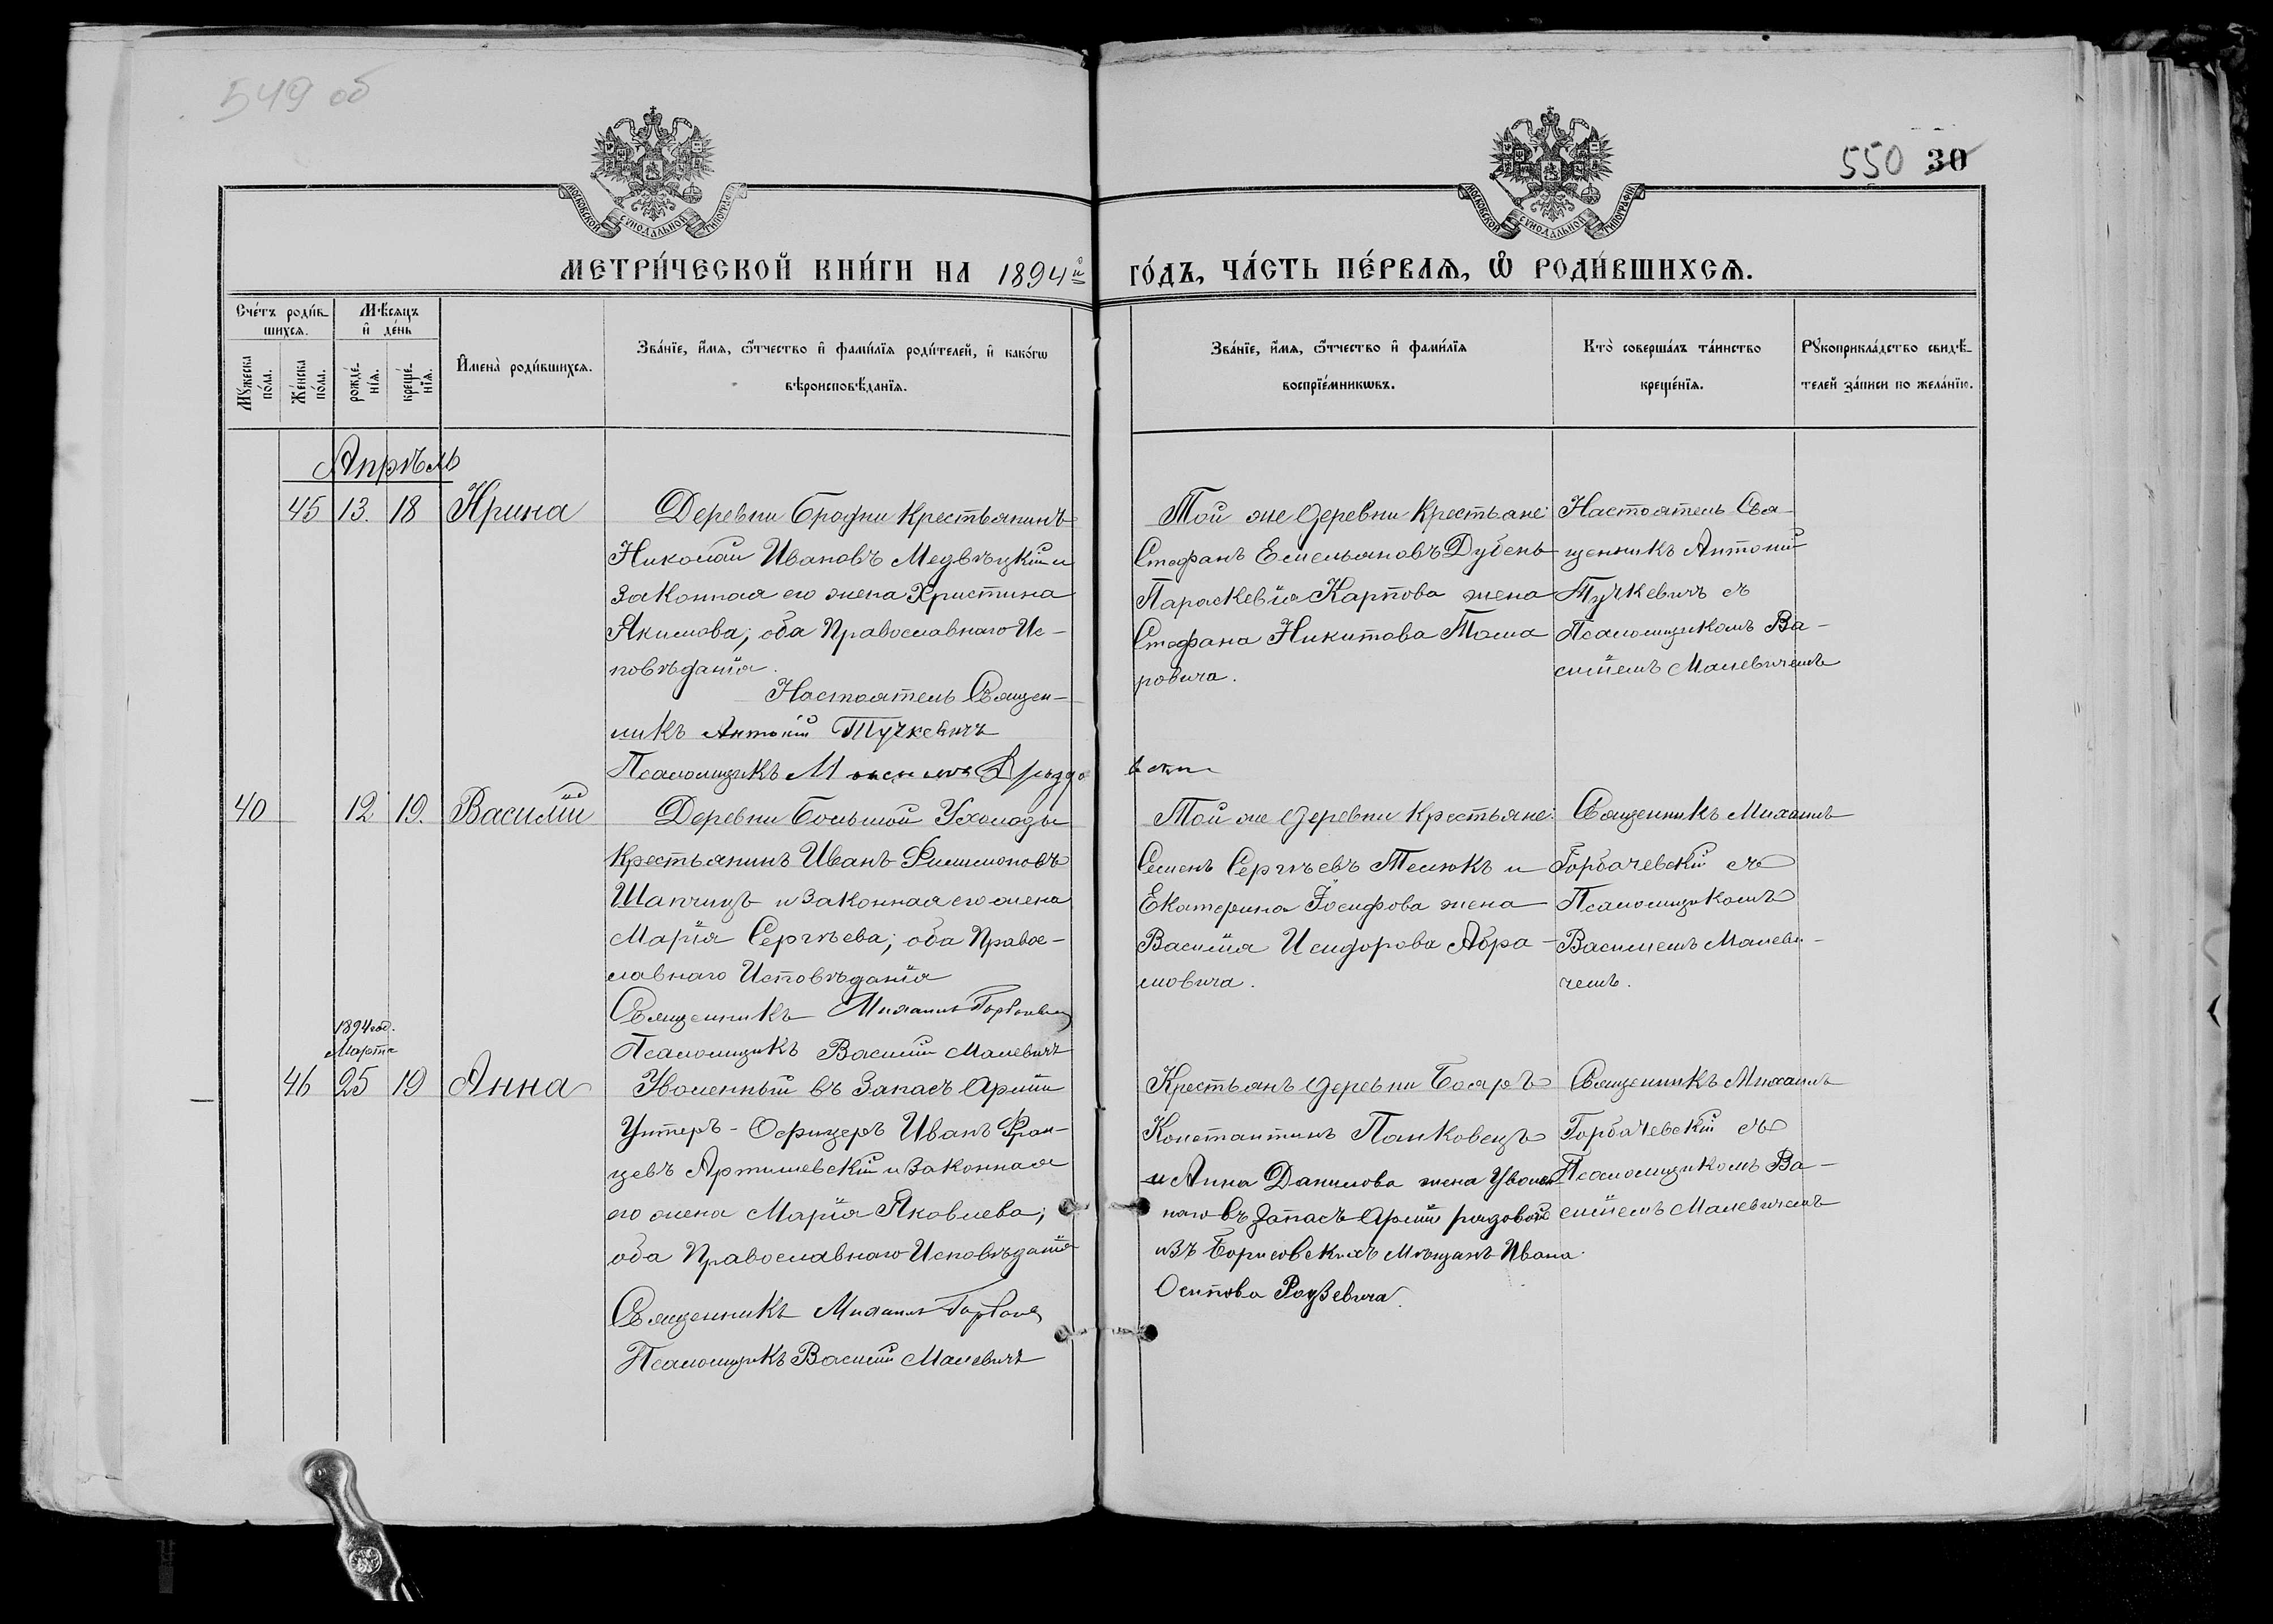 549 об
550 30
МОСКОВСКОЙ СУНОДАЛЬНОЙ ТИПОГРАФІИ
МОСКОВСКОЙ СУНОДАЛЬНОЙ ТИПОГРАФІИ
МЕТРИ́ЧЕСКОЙ КНИ́ГИ НА 1894й ГО́ДЪ, ЧА́СТЬ ПЕ́РВАѦ, Ѡ҆ РОДИ́ВШИХСѦ.
Сче́тъ роди́в-
шихсѧ.
Мꙋ́жеска по́ла.
Же́нска по́ла.
Мѣ́сѧцъ
и҆ де́нь
рожде́-
нїѧ.
креще́-
нїѧ.
И҆мена̀ роди́вшихсѧ.
Зва́нїе, и҆́мѧ, ѻ҆́тчество и҆ фами́лїѧ роди́телей, и҆ како́гѡ
вѣроисповѣ́данїѧ.
Зва́нїе, и҆́мѧ, ѻ҆́тчество и҆ фами́лїѧ
воспрїе́мникѡвъ.
Кто̀ соверша́лъ та́инство
креще́нїѧ.
Рꙋкоприкла́дство свидѣ́-
телей за́писи по жела́нїю.
Апрѣль
45 13. 18 Ирина
Деревни Бродни Крестьянинъ
Николай Ивановъ Медвѣцкій и
Законная его жена Христина
Якимова; оба Православнаго Ис-
повѣданія.
Настоятель Священ-
никъ Антоній Тучкевичъ
Псаломщикъ
Той же деревни Крестьяне:
Стефанъ Емельяновъ Дубень
Параскевія Карпова жена
Стефана Никитова Тома
ровича.
Настоятель Свя-
щенникъ Антоній
Тучкевичъ съ
Псаломщикомъ Ва-
силіемъ Малевичемъ
40 12 19. Василій
Деревни Большой Ухолоды
Крестьянинъ Иванъ Филимоновъ
Шапчицъ и Законная его жена
Марія Сергѣева; оба Право-
славнаго Исповѣданія
Священникъ Михаилъ Горбачевскій
Псаломщикъ Василій Малевичъ
Той же деревни Крестьяне:
Семенъ Сергѣевъ Телюкъ и
Екатерина Іосифова жена
Василія Исидорова Абра-
мовича.
Священникъ Михаилъ
Горбачевскій съ
Псаломщикомъ
Василіемъ Малеви-
чемъ.
1894 год.
Марта
46 25 19 Анна
Уволенный въ Запасъ Арміи
Унтеръ-Офицеръ Иванъ Фран-
цевъ Артишевскій и Законная
его жена Марія Яковлева;
оба Православнаго Исповѣданія
Священникъ Михаилъ
Псаломщикъ Василій Малевичъ
Крестьянъ деревни Бояръ
Константинъ Панковецъ
и Анна Данилова жена Уволен
наго въ Запасъ Арміи рядового
изъ Борисовскихъ Мѣщанъ Ивана
Осипова Раузевича.
Священникъ Михаилъ
Горбачевскій съ
Псаломщикомъ Ва-
силіемъ Малевичемъ